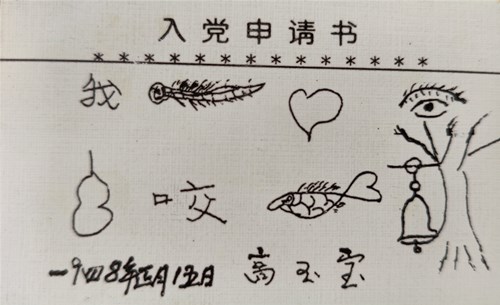 入党申请书
我
咬
一9四8年正月1五日 高玉宝